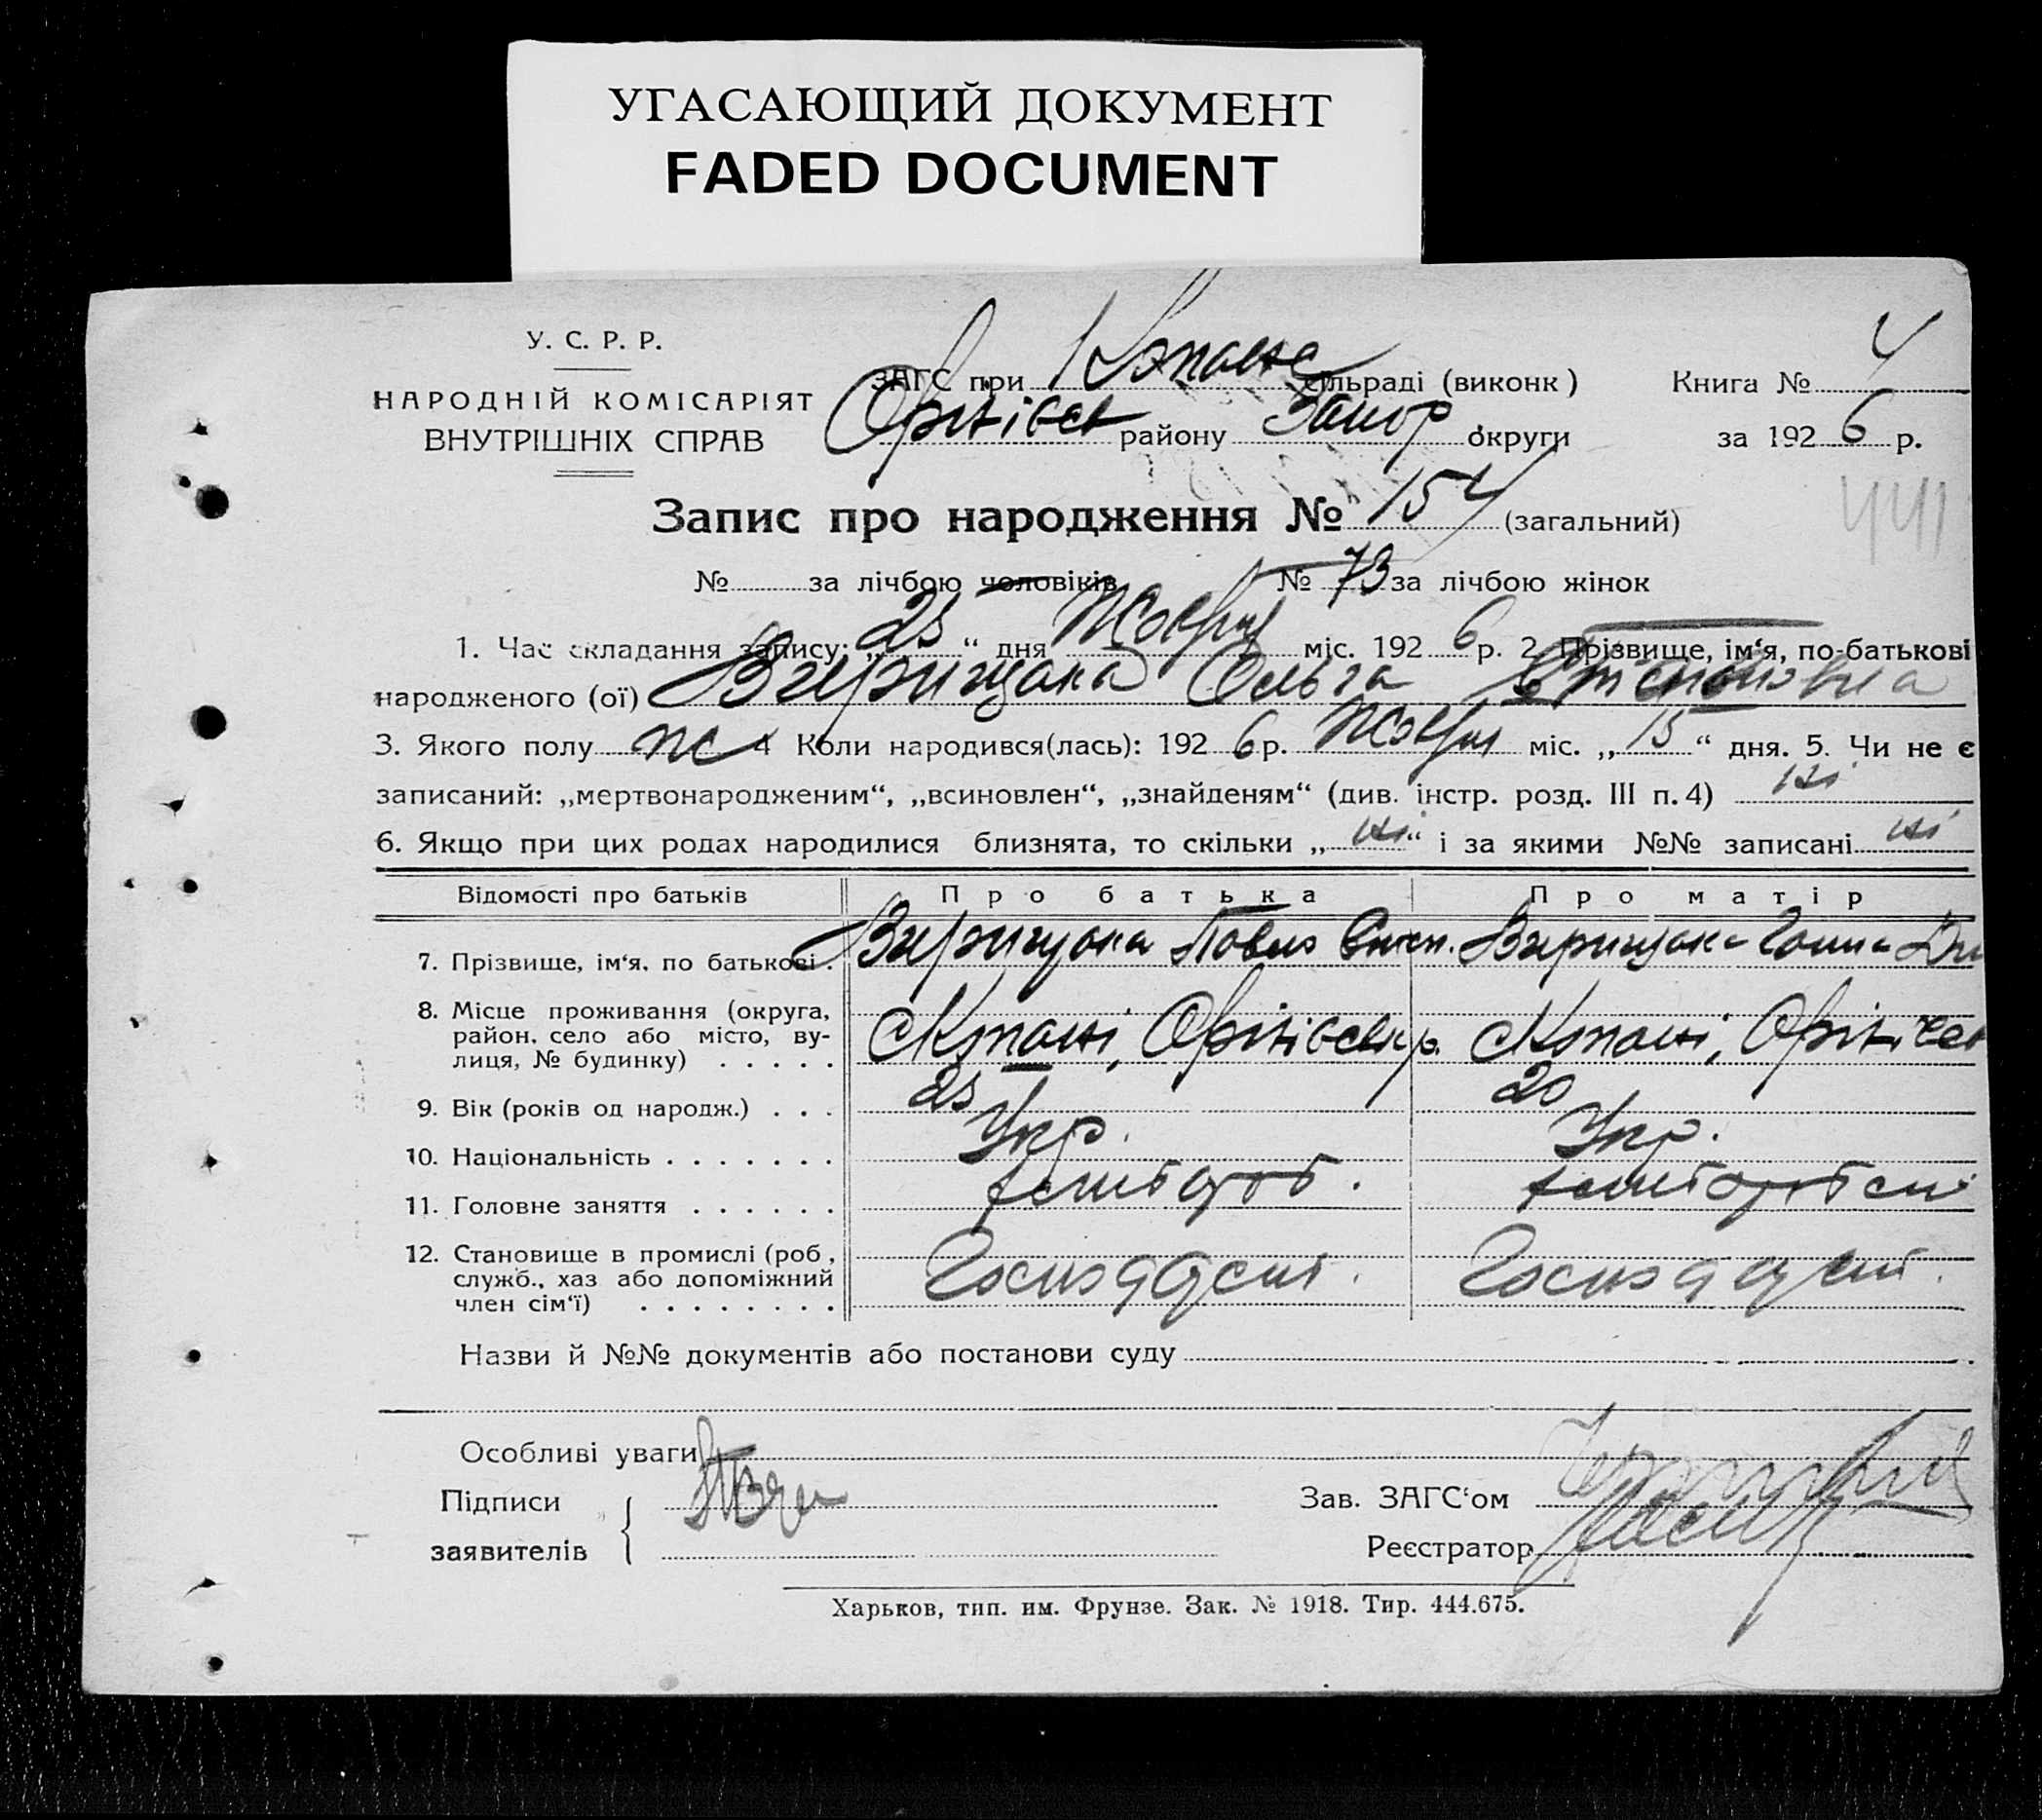 УГАСАЮЩИЙ ДОКУМЕНТ
FADED DOCUMENT
У. С. Р. Р.
НАРОДНІЙ КОМІСАРІЯТ
ВНУТРІШНІХ СПРАВ
ЗАГС при сільраді (виконк)
району Запор округи
Книга № 4
за 1926 р.
441
Запис про народження № 154 (загальний)
№ за лічбою чоловіків № 73 за лічбою жінок
1. Час складання запису: „ 25 “ дня Жовтня міс. 1926 р. 2. Прізвище, ім‘я, по-батькові
народженого (ої) Ольга
3. Якого полу ж 4 Коли народився(лась): 1926 р. Жовтня міс. „ 15 “ дня. 5. Чи не є
записаний: „мертвонародженим“, „всиновлен“, „знайденям“ (див. інстр. розд. III п. 4) ні
6. Якщо при цих родах народилися близнята, то скільки „ ні “ і за якими №№ записані ні
Відомості про батьків Про батька Про матір
7. Прізвище, ім‘я, по батькові . Павло Ганна
8. Місце проживання (округа,
район, село або місто, ву-
лиця, № будинку) . . . . . с Копані, с Копані,
9. Вік (років од народж.) . . . 25 20
10. Національність . . . . . . . Укр. Укр.
11. Головне заняття . . . . . . хлібороб. хлібороб
12. Становище в промислі (роб,
служб., хаз або допоміжний
член сім‘ї) . . . . . . . .
Назви й №№ документів або постанови суду
Особливі уваги
Підписи
заявителів
Зав. ЗАГС‘ом
Реєстратор
Харьков, тип. им. Фрунзе. Зак. № 1918. Тир. 444.675.